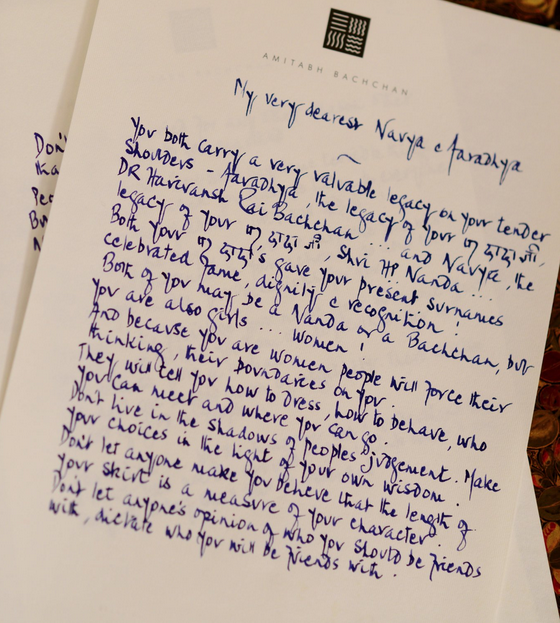 AMITABH BACHCHAN
My very dearest Navya & Aaradhya
You both carry a very valuable legacy on your tender
shoulders - Aaradhya, the legacy of your
DR Harivansh Rai Bachchan ... and Navya, the
legacy of your, Shri HP Nanda ...
Both your दादाजी's gave your present surnames
celebrated fame, dignity & recognition!
Both of you may be a Nanda or a Bachchan, but
you are also girls ... women!
And because you are women people will force their
thinking, their boundaries on you.
They will tell you how to dress, how to behave, who
you can meet and where you can go.
Don't live in the shadows of people's judgement. Make
your choices in the light of your own wisdom.
Don't let anyone make you believe that the length of
your skirt is a measure of your character.
Don't let anyone's opinion of who you should be friends
with, dictate who you will be friends with.
Don'